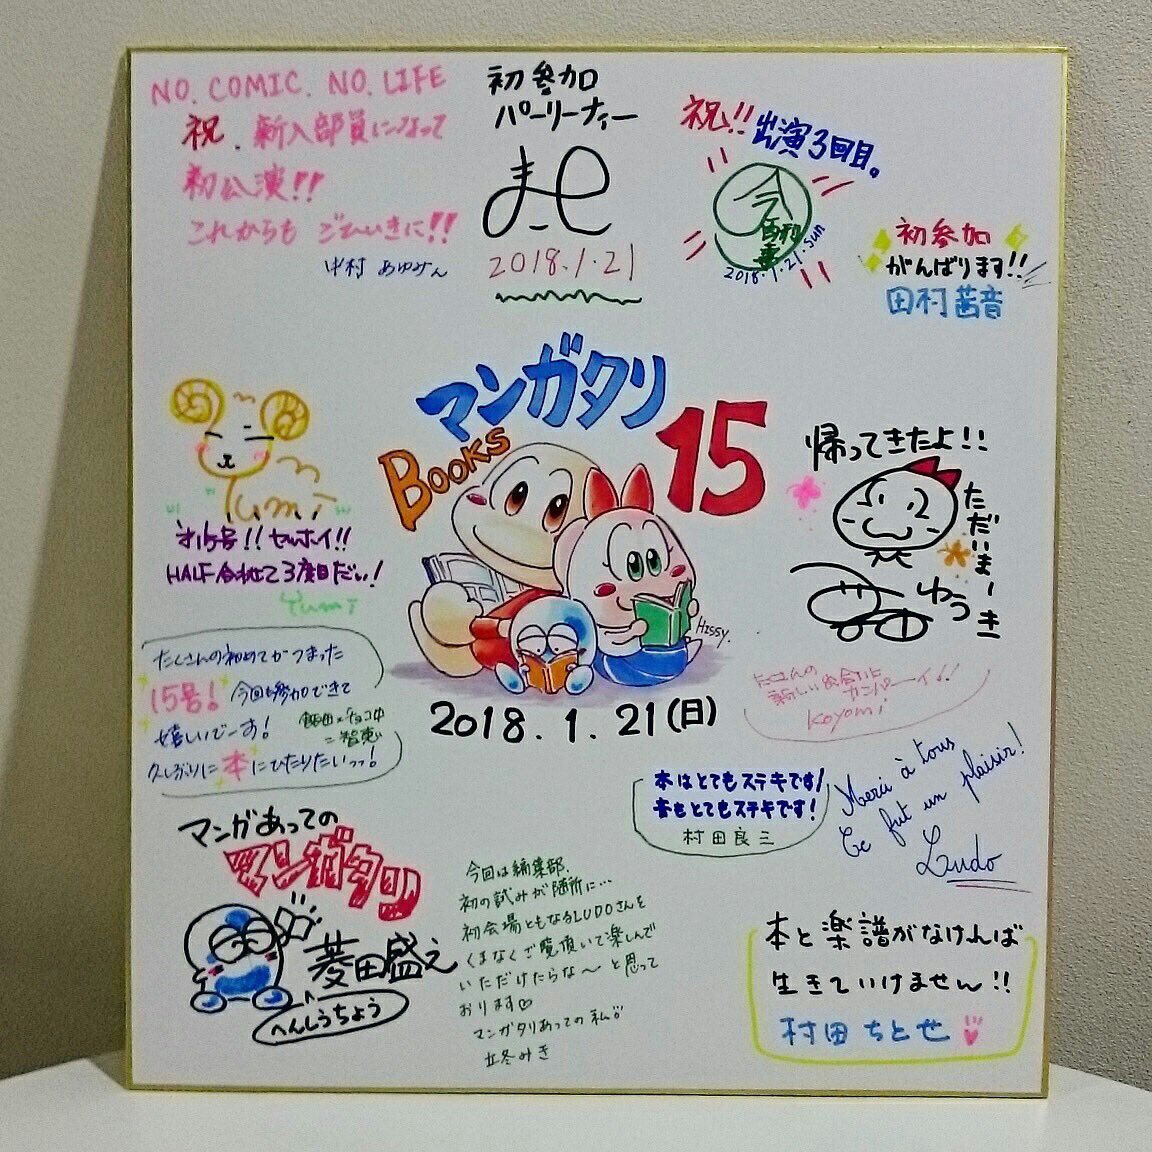 NO. COMIC. NO. LIFE
祝. 新入部員になって
初公演!!
これからも ごひいきに!!
中村 あゆみん
初参加
パーリーナィー
2018.1.21
祝!! 出演3回目。
2018.1.21.sun
初参加
がんばります!!
田村茜音
マンガタリ
BOOKS
15
HISSY.
2018.1.21(日)
Yumi
才15号!! セルホイ!!
HALF合わせて3度目だい!
Yumi
帰ってきたよ!!
ただいまー
ゆうき
たくさんの初めてがつまった
15号! 今回も参加できて
嬉しいでーす!
久しぶりに本にひたりたいっっ!
たくさんの
新しい出会いに
カンパーイ!!
Koyomi
本はとてもステキです!
本もとてもステキです!
村田良三
Merci à tous
Ce fut un plaisir!
Ludo
マンガあっての
マンガタリ
菱田盛之
へんしゅうちょう
今回は編集部、
初の試みが随所に…
初会場ともなるLUDOさんを
くまなくご覧頂いて楽しんで
いただけたらな〜と思って
おります♡
マンガタリあっての私!!
立冬みき
本と楽譜がなければ
生きていけません!!
村田ちとせ